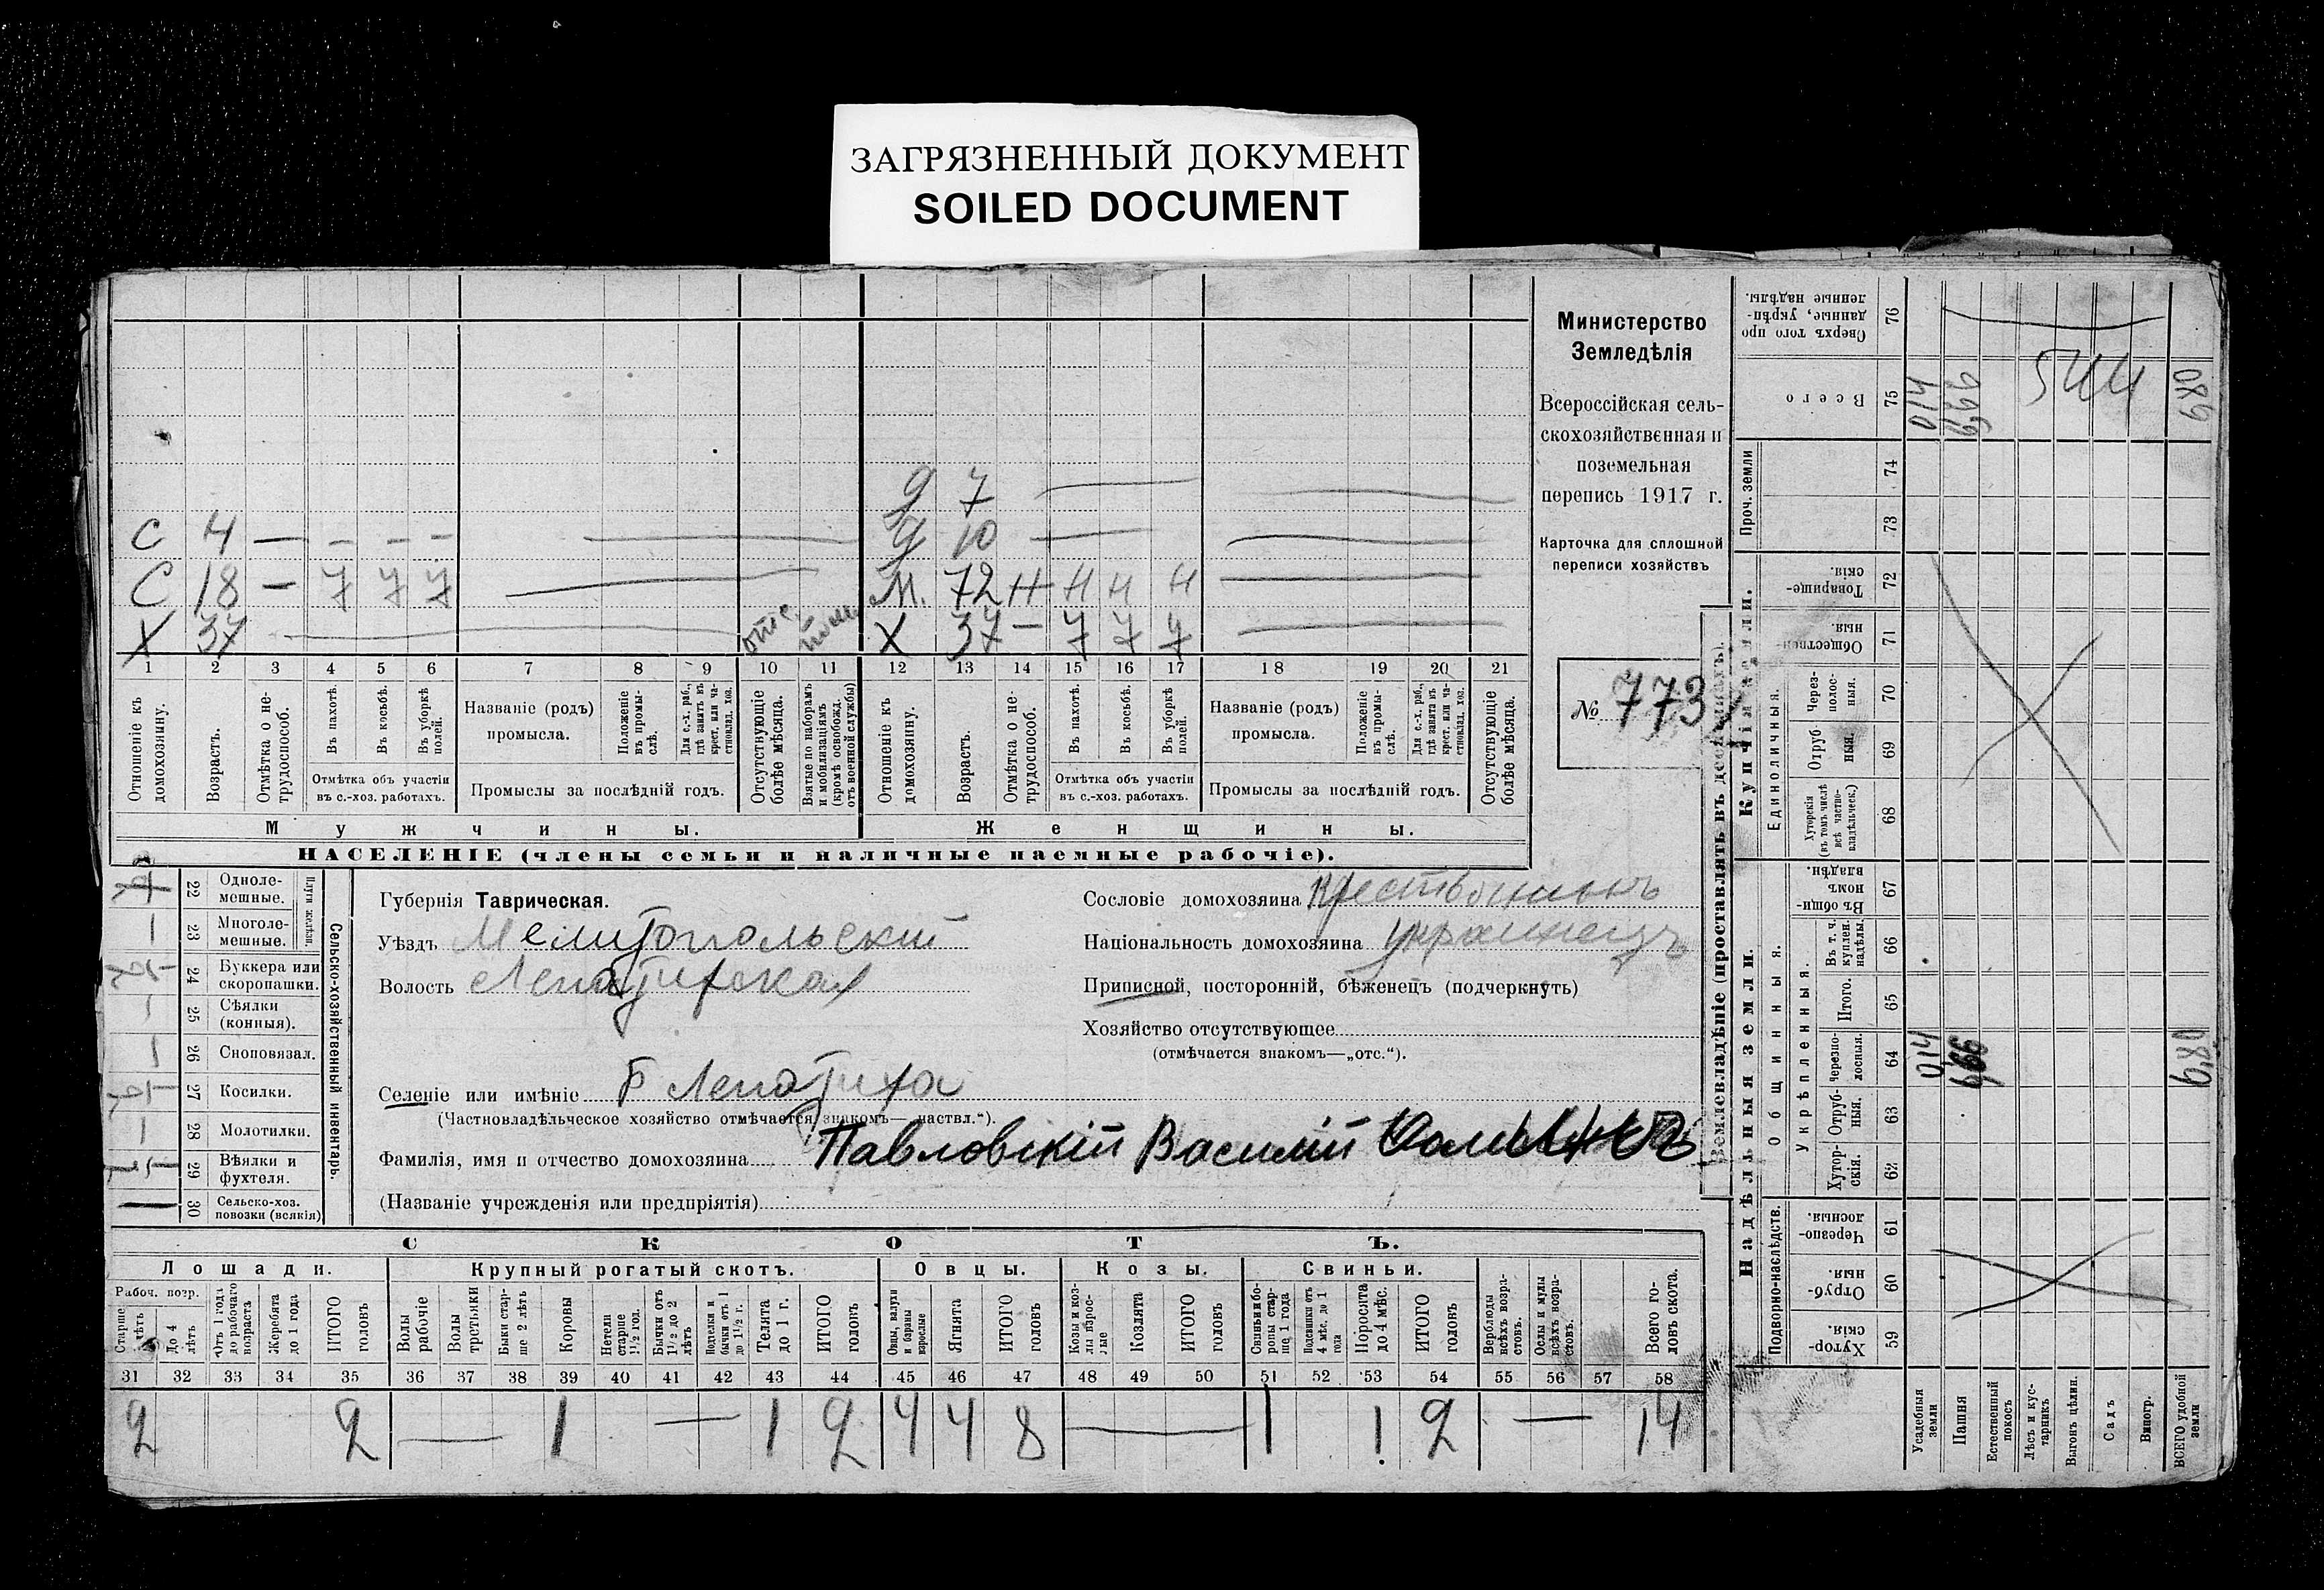 ЗАГРЯЗНЕННЫЙ ДОКУМЕНТ
SOILED DOCUMENT
д 7
С 4 — - - - д 10 —
С 18 — 7 7 7 М. 72 Н Н Н Н
Х 37 отс. Х 37 — 7 7 7
1 2 3 4 5 6 7 8 9 10 11 12 13 14 15 16 17 18 19 20 21
Отношеніе къ домохозяину.
Возрастъ.
Отмѣтка о не-трудоспособ.
Въ пахотѣ.
Въ косьбѣ.
Въ уборкѣ полей.
Отмѣтка объ участіи
въ с.-хоз. работахъ.
Названіе (родъ)
промысла.
Положеніе въ промы-слѣ.
Для с.-х. раб., гдѣ занятъ въ крест. или ча-стновлад. хоз.
Промыслы за послѣдній годъ.
Отсутствующіе болѣе мѣсяца.
Взятые по наборамъ и мобилизаціямъ (кромѣ освобожд. отъ военной службы)
Отношеніе къ домохозяину.
Возрастъ.
Отмѣтка о не-трудоспособ.
Въ пахотѣ.
Въ косьбѣ.
Въ уборкѣ полей.
Отмѣтка объ участіи
въ с.-хоз. работахъ.
Названіе (родъ)
промысла.
Положеніе въ промы-слѣ.
Для с.-х. раб., гдѣ занята въ крест. или ча-стновлад. хоз.
Промыслы за послѣдній годъ.
Отсутствующіе болѣе мѣсяца.
Мужчины.
Женщины.
НАСЕЛЕНІЕ (члены семьи и наличные наемные рабочіе).
Министерство
Земледѣлія
Всероссійская сель-
скохозяйственная и
поземельная
перепись 1917 г.
Карточка для сплошной
переписи хозяйствъ
№ 773
22 Одноле-мешные.
23 Многоле-мешные.
Плуги желѣзн.
24 Буккера или скоропашки.
25 Сѣялки (конныя).
26 Сноповязал.
27 Косилки.
28 Молотилки.
29 Вѣялки и фухтеля.
30 Сельско-хоз. повозки (всякія)
Сельско-хозяйственный инвентарь.
Губернія Таврическая.
Уѣздъ Мелитопольскій
Волость Лепатихская
Селеніе или имѣніе Б Лепатиха
(Частновладѣльческое хозяйство отмѣчается знакомъ—„частвл.“).
Фамилія, имя и отчество домохозяина Павловскій Василій
(Названіе учрежденія или предпріятія)
Сословіе домохозяина Крестьянинъ
Національность домохозяина украинецъ
Приписной, посторонній, бѣженецъ (подчеркнуть)
Хозяйство отсутствующее
(отмѣчается знакомъ—„отс.“).
СКОТЪ.
Лошади. Крупный рогатый скотъ. Овцы. Козы. Свиньи.
Рабоч. возр.
Старше 4 лѣтъ
До 4 лѣтъ
Отъ 1 года до рабочаго возраста
Жеребята до 1 года
ИТОГО головъ
Волы рабочіе
Волы третьяки
Быки стар-ше 2 лѣтъ
Коровы
Нетели старше 1½ год.
Бычки отъ 1½ до 2 лѣтъ
Подтелки и бычки отъ 1 до 1½ г.
Телята до 1 г.
ИТОГО головъ
Овцы, валухи и бараны взрослые
Ягнята
ИТОГО головъ
Козы и коз-лы взрос-лые
Козлята
ИТОГО головъ
Свиньи и бо-ровы стар-ше 1 года
Подсвинки отъ 4 мѣс. до 1 года
Поросята до 4 мѣс.
ИТОГО головъ
Верблюды всѣхъ возра-стовъ.
Ослы и мулы всѣхъ возра-стовъ.
Всего го-ловъ скота.
31 32 33 34 35 36 37 38 39 40 41 42 43 44 45 46 47 48 49 50 51 52 53 54 55 56 57 58
2 2 — 1 — 1 2 4 4 8 — 1 1 2 — 14
Землевладѣніе (проставлять въ десятинахъ).
Купчія земли.
Надѣльныя земли.
Сверхъ того про данные, укрѣп-ленные надѣлы. 76
Всего 75 014 666 544 680
Проч. земли 74 73
Товарище-скія. 72
Обществен-ныя. 71
Единоличныя.
Через-полос-ныя. 70
Отруб-ныя. 69
Хуторскія (въ томъ числѣ всѣ частно-владѣльческ.) 68
Общинныя.
Въ общин-номъ владѣн. 67
Укрѣпленныя.
Въ т. ч. куплен. надѣлы. 66
Итого. 65
Черезпо-лосныя. 64 014 666 680
Отруб-ныя. 63
Хутор-скія. 62
Подворно-наслѣдств.
Черезпо-лосныя. 61
Отруб-ныя. 60
Хутор-скія. 59
Усадебныя земли
Пашня
Естественный покосъ
Лѣсъ и кус-тарникъ
Выгонъ цѣлин.
Садъ
Виногр.
ВСЕГО удобной земли